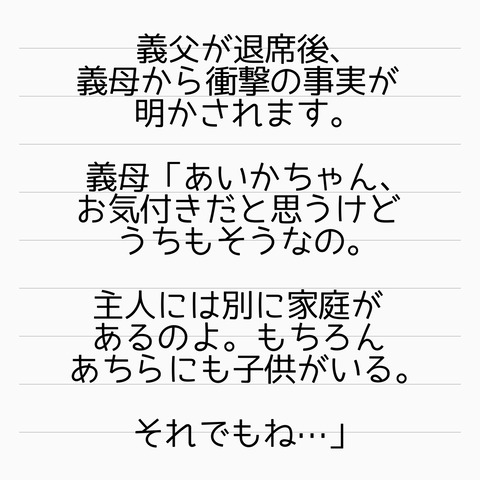 義父が退席後、
義母から衝撃の事実が
明かされます。
義母「あいかちゃん、
お気付きだと思うけど
うちもそうなの。
主人には別に家庭が
あるのよ。もちろん
あちらにも子供がいる。
それでもね…」